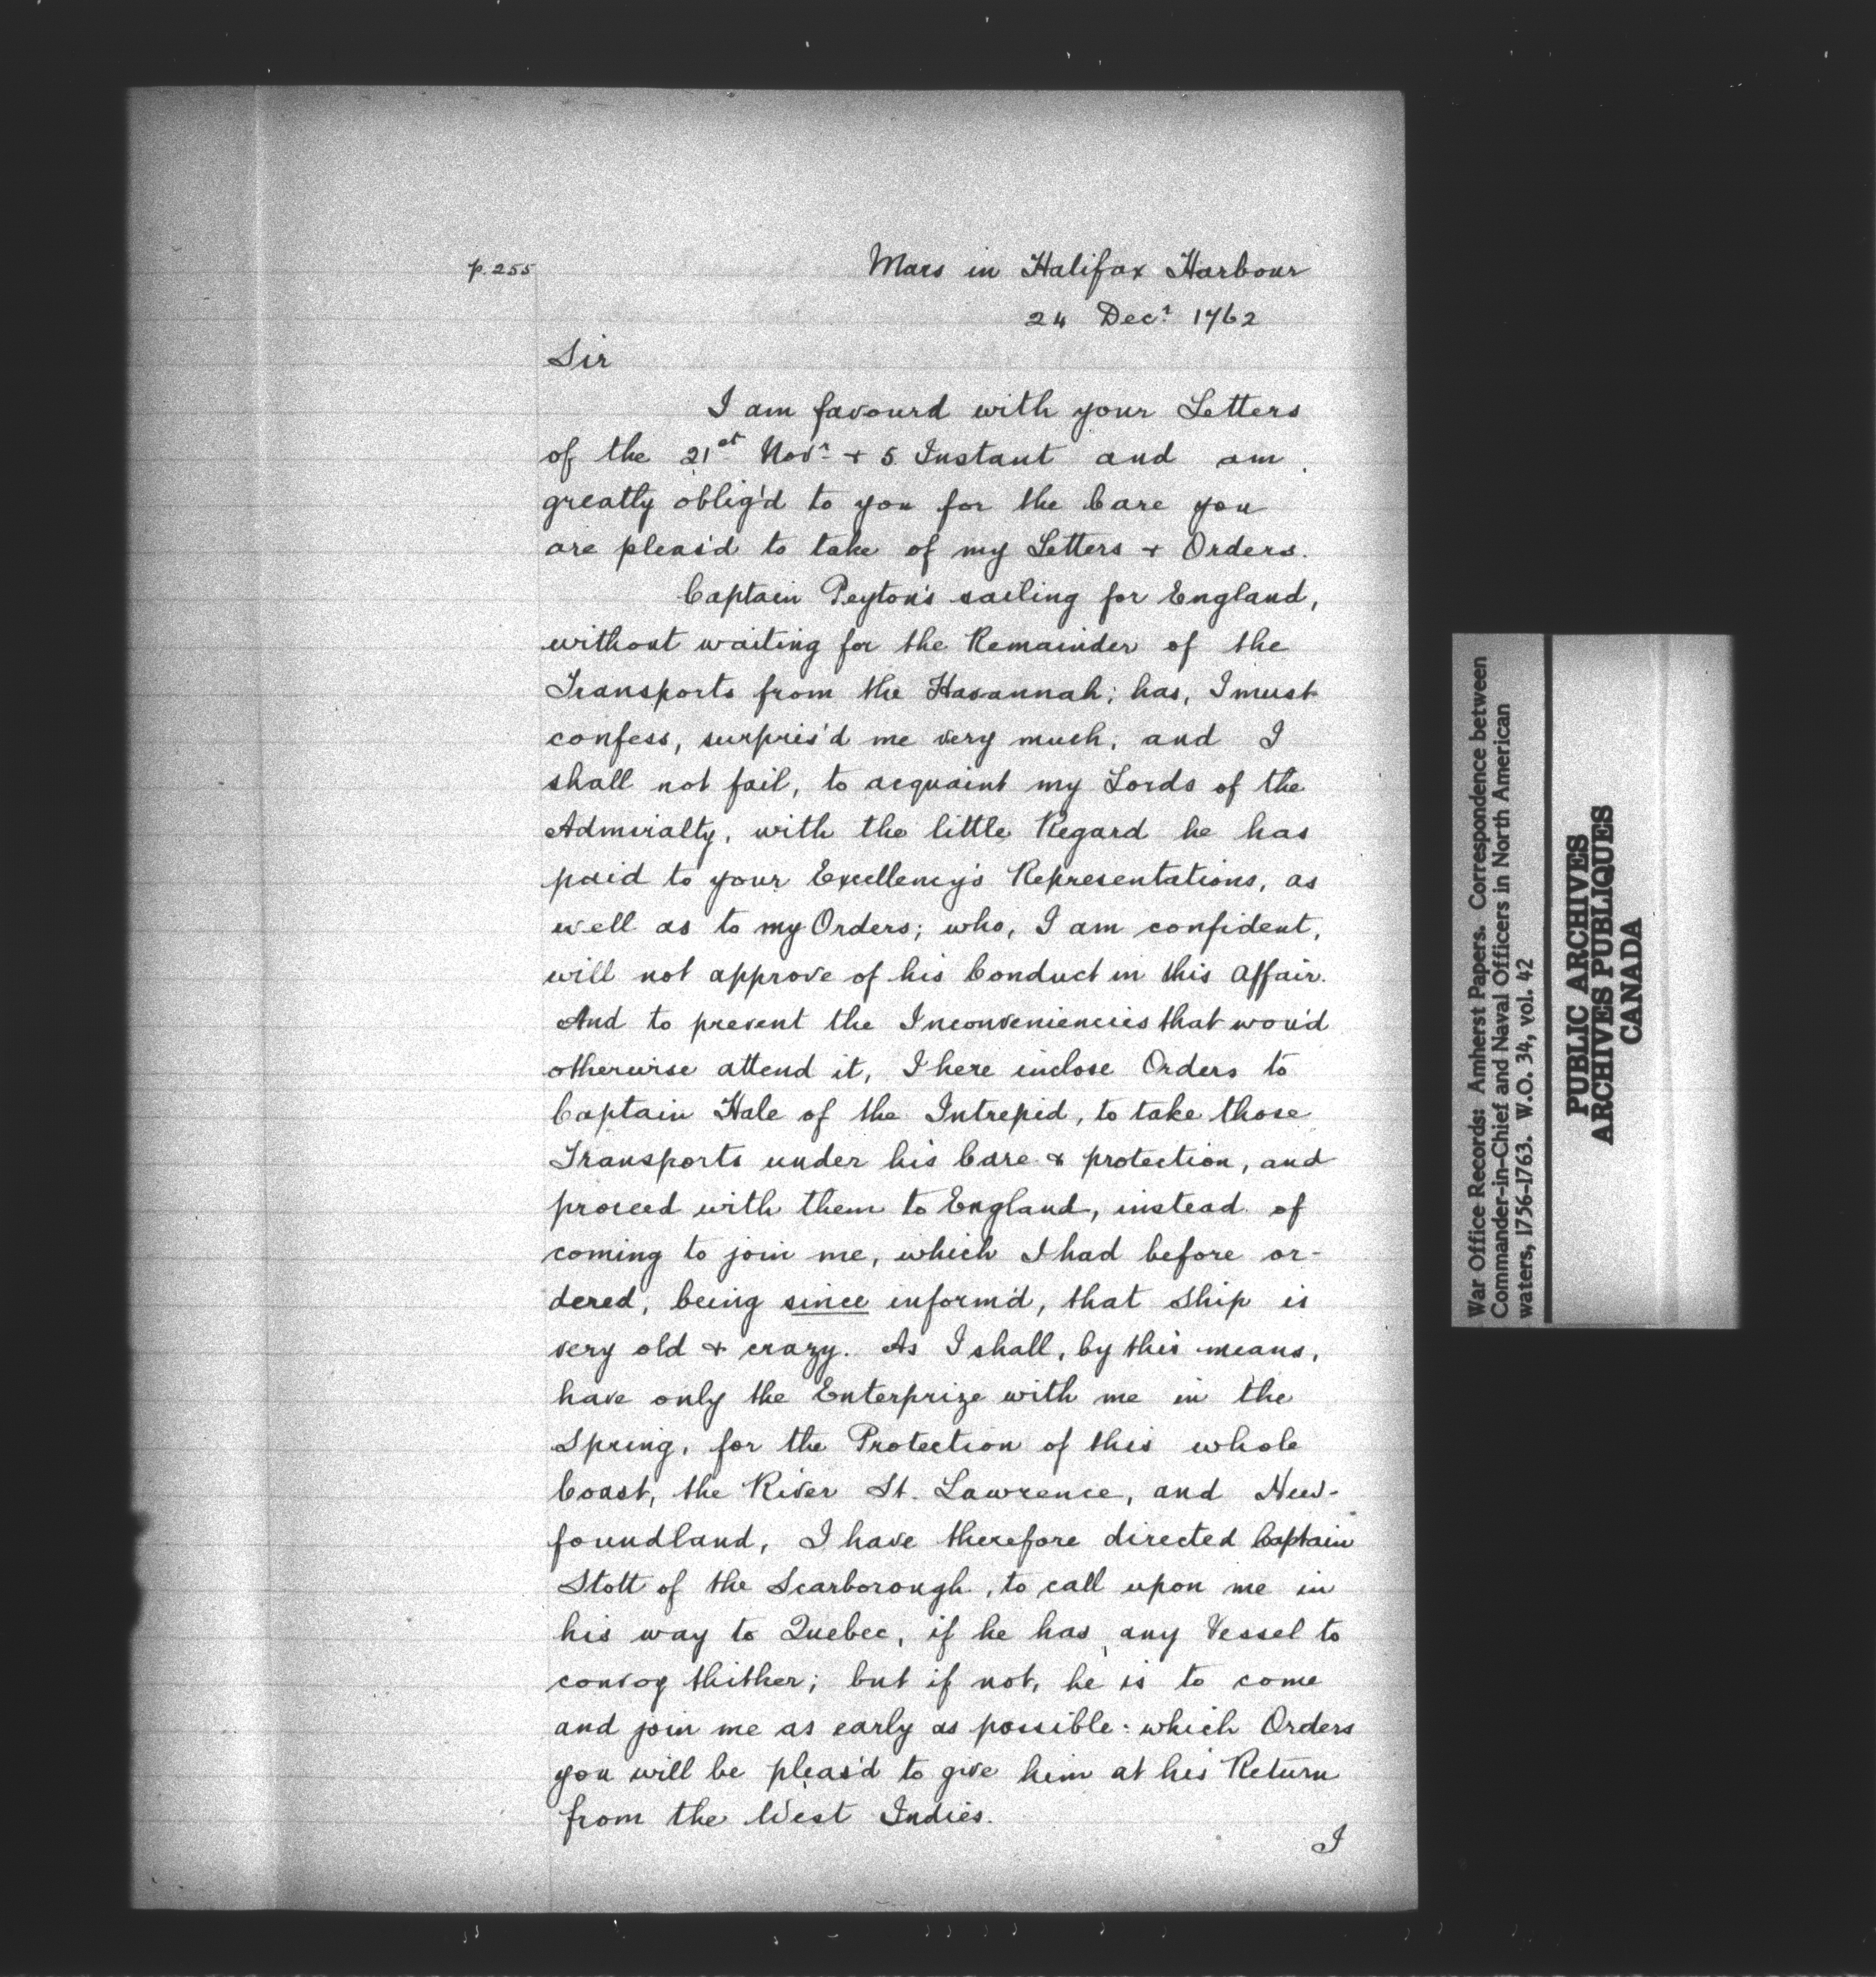 p. 255
Mars in Halifax Harbour
24 Decr 1762
Sir
I am favourd with your Letters
of the 21st Novr + 5 Instant and am
greatly oblig'd to you for the Care you
are pleas'd to take of my Letters + Orders.
Captain Peyton's sailing for England,
without waiting for the Remainder of the
Transports from the Havannah; has, I must
confess, surpris'd me very much; and I
shall not fail, to acquaint my Lords of the
Admiralty, with the little Regard he has
paid to your Excellency's Representations, as
well as to my Orders; who, I am confident,
will not approve of his Conduct in this affair.
And to prevent the Inconveniencies that wou'd
otherwise attend it, I here inclose Orders to
Captain Hale of the Intrepid, to take those
Transports under his Care & protection, and
proceed with them to England, instead of
coming to join me, which I had before or-
dered, being since inform'd, that Ship is
very old & crazy. As I shall, by this means,
have only the Enterprize with me in the
Spring, for the Protection of this whole
Coast, the River St. Lawrence, and New-
foundland, I have therefore directed Captain
Stott of the Scarborough, to call upon me in
his way to Quebec, if he has any Vessel to
convoy thither; but if not, he is to come
and join me as early as possible: which Orders
you will be pleas'd to give him at his Return
from the West Indies.
I
War Office Records: Amherst Papers. Correspondence between
Commander-in-Chief and Naval Officers in North American
waters, 1756-1763. W.O. 34, vol. 42
PUBLIC ARCHIVES
ARCHIVES PUBLIQUES
CANADA